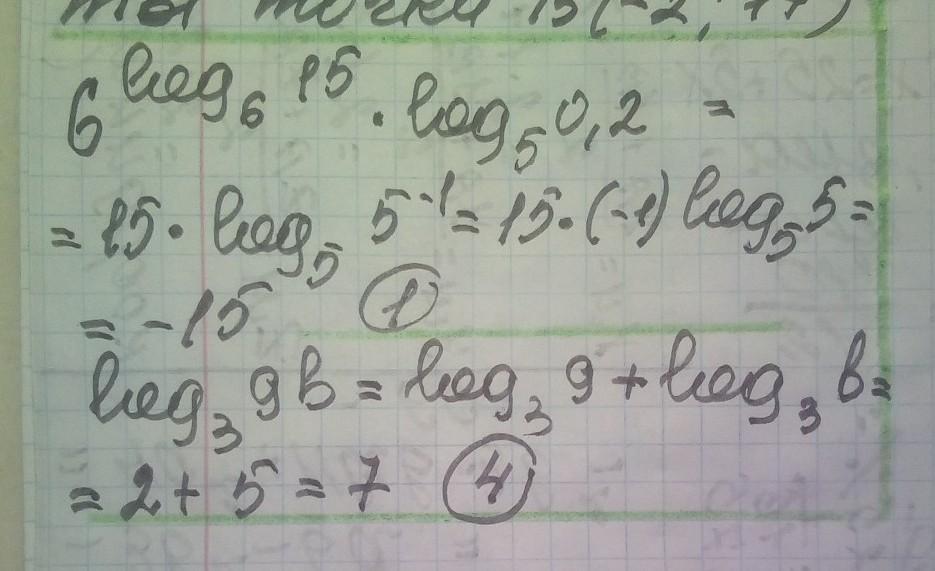 точка B(-2; 17)
6^{log_6 15} · log_5 0,2 =
= 15 · log_5 5^{-1} = 15 · (-1) log_5 5 =
= -15 ①
log_3 9b = log_3 9 + log_3 b =
= 2 + 5 = 7 ④